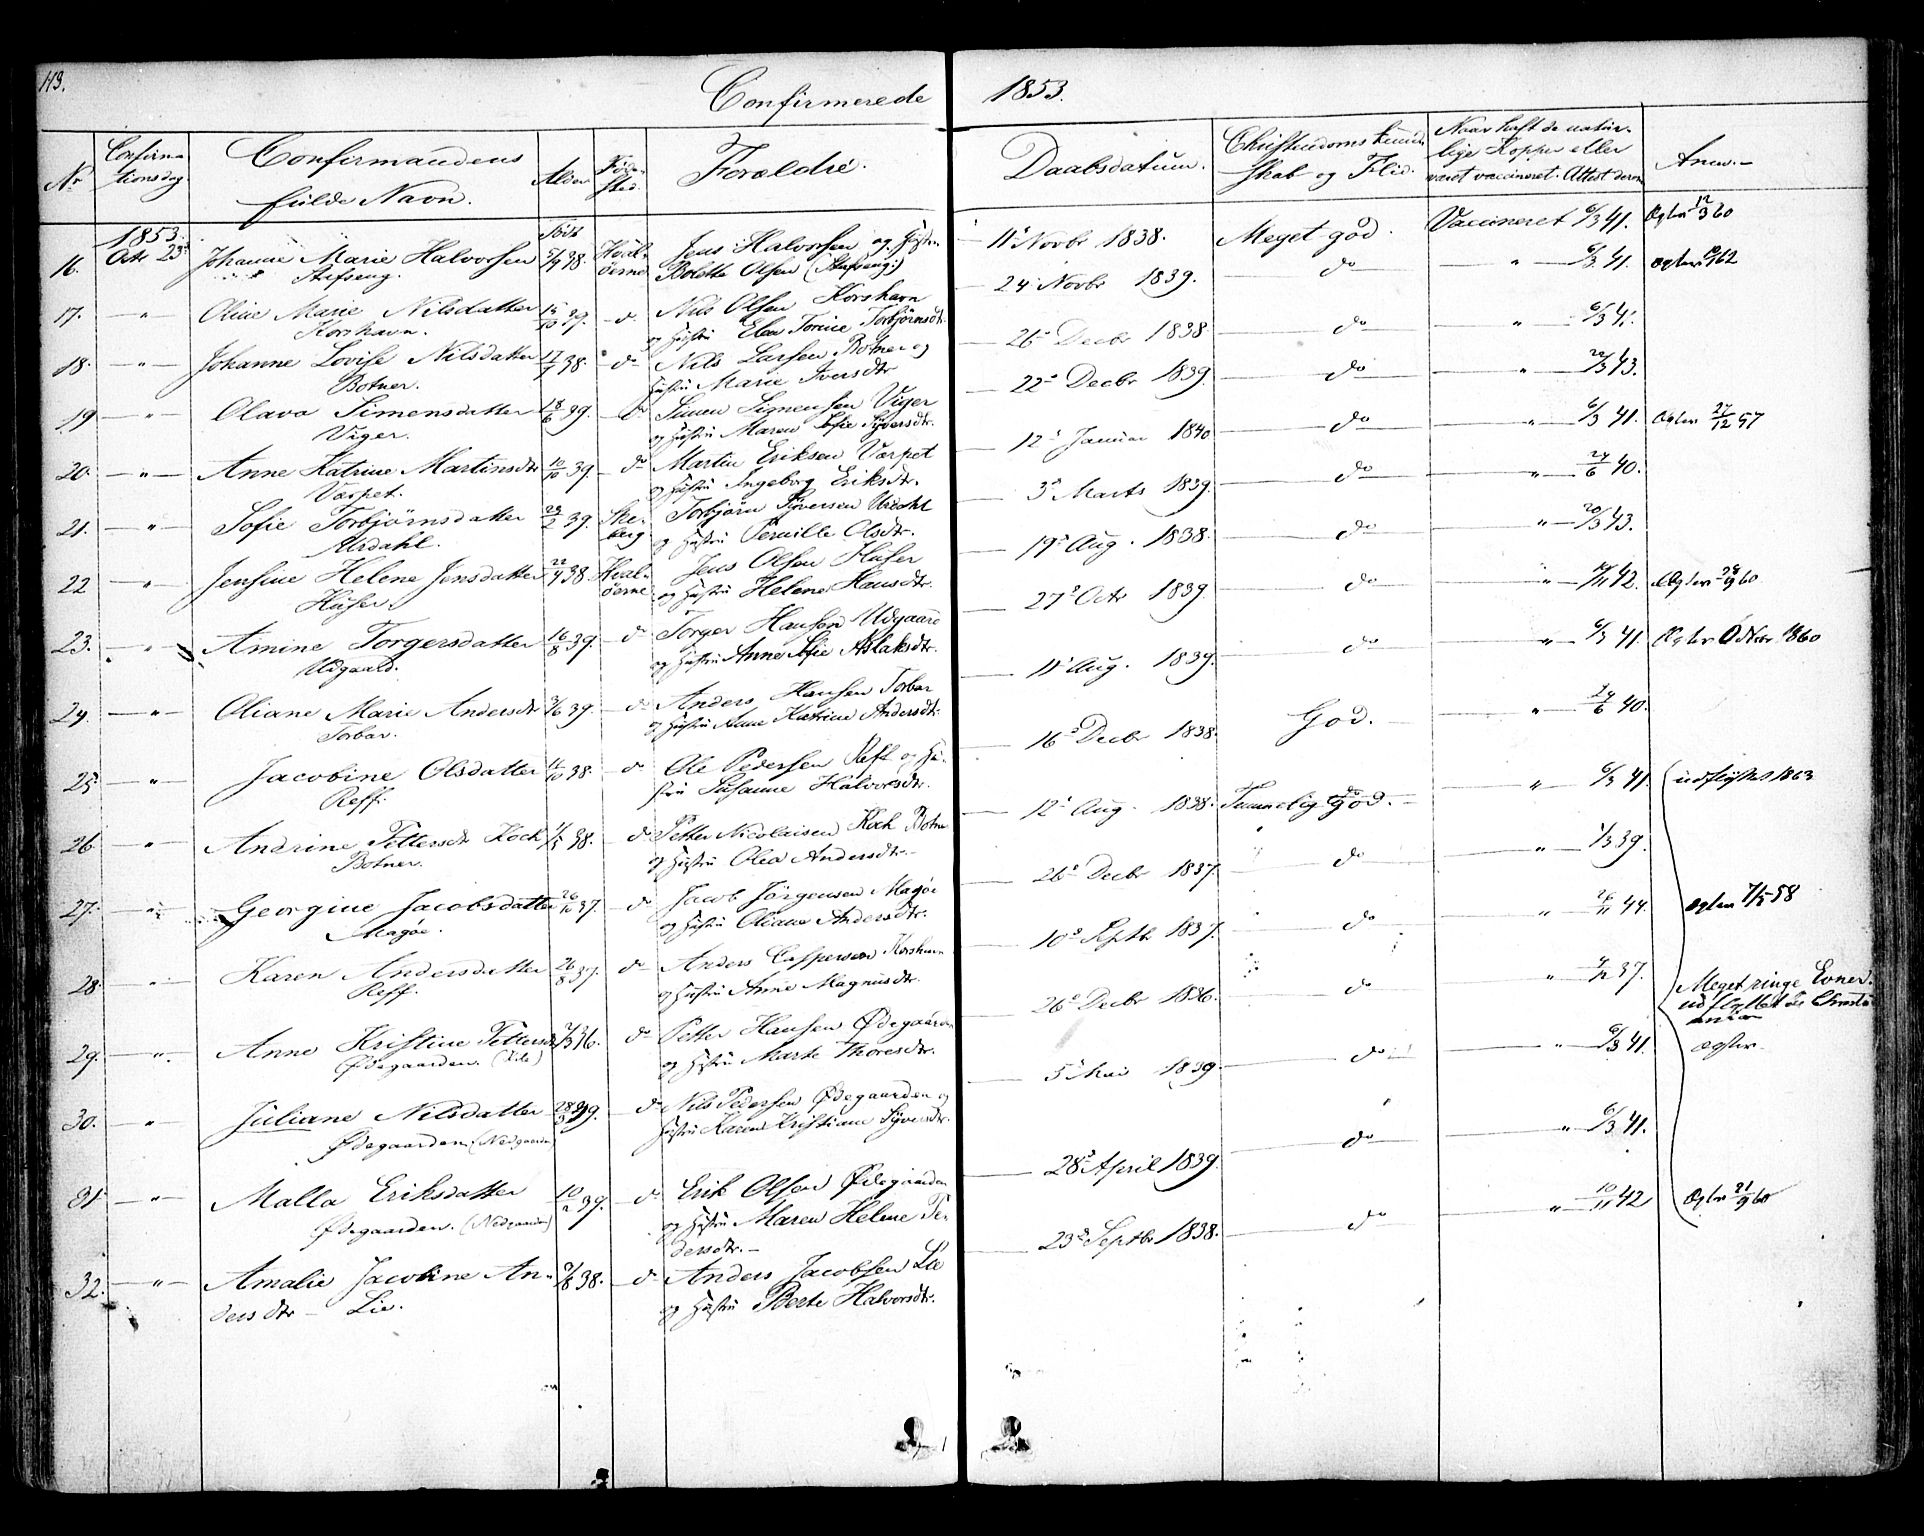 113.
Confirmerede 1853.
Nr Confirmationsdag Confirmandens fulde Navn. Alder Fødested. Forældre. Daabsdatum. Christendoms kundskab og Flid. Naar haft de naturlige Kopper eller været vaccineret. Attest derom Anm.
1853. født
16. Octr 23d Johanne Marie Halvorsen 38. Hvaløerne Jens Halvorsen og Hustru 11te Novbr 1838. Meget god. Vaccineret 6/3 41. Ægtev 12/3 60
Boletthe Olsen
17. " Oline Marie Nilsdatter 15/10 39. do Nils Olsen Korshavn 24 Novbr 1839. do " 6/3 41. Ægtev 62
Korshavn. og Hustru Elen Torine Torbjørnsdtr
18. " Johanne Lovise Nilsdatter 38. do Nils Larsen Botner og 26de Decbr 1838 do " 6/3 41.
Botner. Hustru Marie Iversdtr
19 " Olava Simensdatter 18/6 39. do Simen Simensen Viger 22de Decbr 1839. do " 22/3 43.
Viger. og Hustru Maren Sofie Syversdtr.
20. " Anne Katrine Martinsdtr 10/10 39. do Martin Eriksen Værpet 12te Januar 1840 do " 6/3 41. Ægtev 27/12 57
Værpet. og Hustru Ingeborg Eriksdtr.
21. " Sofie Torbjørnsdatter 23/2 39. Skeberg Torbjørn Syversen 3de Marts 1839. do " 24/6 40.
og Hustru Pernille Olsdtr.
22 " Jensine Helene Jensdatter 22/7 38. Hvaløerne Jens Olsen Huser 19de Aug. 1838. do " 20/3 43.
Huser. og Hustru Helene Hansdtr.
23. " Amine Torgersdatter 16/8 39. do Torger Hansen Udgaard 27de Octr 1839. do " 42. Ægtev 28/9 60
Udgaard. og Hustru Anne Sofie Aslaksdtr.
24. " Oliane Marie Andersdtr 39. do Anders Hansen Torbar 11te Aug. 1839. do " 6/3 41. Ægtev 1860
Torbar. og Hustru Anne Katrine Andersdtr.
25 " Jacobine Olsdatter 38. do Ole Pedersen Reff og Hu- 16de Decbr 1838. God. " 24/6 40.
Reff. stru Susanne Halvorsdtr.
26 " Andrine Pettersdtr Kock 38. do Petter Nicolaisen Kock Botne 12te Aug. 1838. Temmelig god. " 6/3 41. udflyttet 1863
Botner. og Hustru Olea Andersdtr.
27. " Georgine Jacobsdatter 26/10 37. do Jacob Jørgensen Magøe 26de Decbr 1837. do " 1/3 39.
Magøe. og Hustru Oliane Andersdtr.
28. " Karen Andersdatter 26/8 37. do Anders Caspersen Korshavn 10de Septbr 1837. do " 26/11 44. Ægtev 7/5 58
Reff. og Hustru Anne Magnusdtr.
29. " Anne Kristine Pettersdtr 36. do Petter Hansen Ødegaarden 26de Decbr 1836. do " 37. Meget ringe Evner.
Ødegaarden. og Hustru Marte Thoresdtr. udflyttet
30. " Juliane Nilsdatter 28/3 39. do Nils Pedersen Ødegaarden og 5te Mai 1839. do " 6/3 41. Ægtev
Ødegaarden (Nedgaarden) Hustru Karen Kristiane Syversdtr.
31 " Malla Eriksdatter 10/2 39. do Erik Olsen Ødegaarden 28de April 1839. do " 6/3 41.
Ødegaarden. (Nedgaarden) og Hustru Maren Helene Pe-
dersdtr.
32. " Amalie Jacobine An- 38. do Anders Jacobsen Lie 23de Septbr 1838. do " 10/11 42 Ægtev 21/9 60
dersdtr Lie. og Hustru Berte Halvorsdtr.